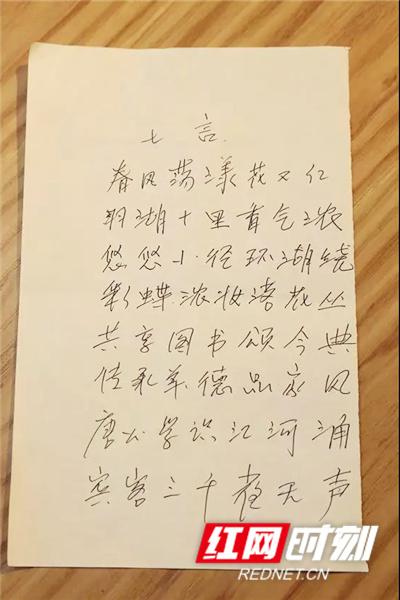 七言.
春风荡漾花又红
湖十里香气浓
悠悠小径环湖绕
彩蝶浓妆落花丛
共享图书颂今典
传承美德品家风
唐公学识江河涌
宾客三千雀无声
红网时刻
REDNET.CN